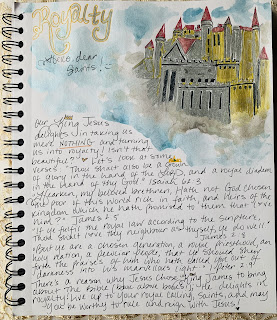 Royalty
Hello, dear
Saints!
Our King Jesus
delights in taking us
mere NOTHING and turning
us into royalty! Isn't that
beautiful? Let's look at some
verses. "Thou shalt also be a crown
of glory in the hand of the LORD, and a royal diadem
in the hand of thy God." Isaiah 62:3
"Hearken, my beloved brethren, Hath not God chosen
the poor of this world rich in faith, and heirs of the
kingdom which he hath promised to them that love
him?" James 2:5
"If ye fulfil the royal law according to the scripture,
Thou shalt love thy neighbour as thyself, ye do well:"
James 2:8
"But ye are a chosen generation, a royal priesthood, an
holy nation, a peculiar people; that ye should shew
forth the praises of him who hath called you out of
darkness into his marvellous light:" 1 Peter 2:9
There's a reason why Jesus chose King James to bring
about the Bible (book about books)! He delights in
royalty! Live up to your royal calling, Saints, and may
you be worthy to take and reign with Jesus!